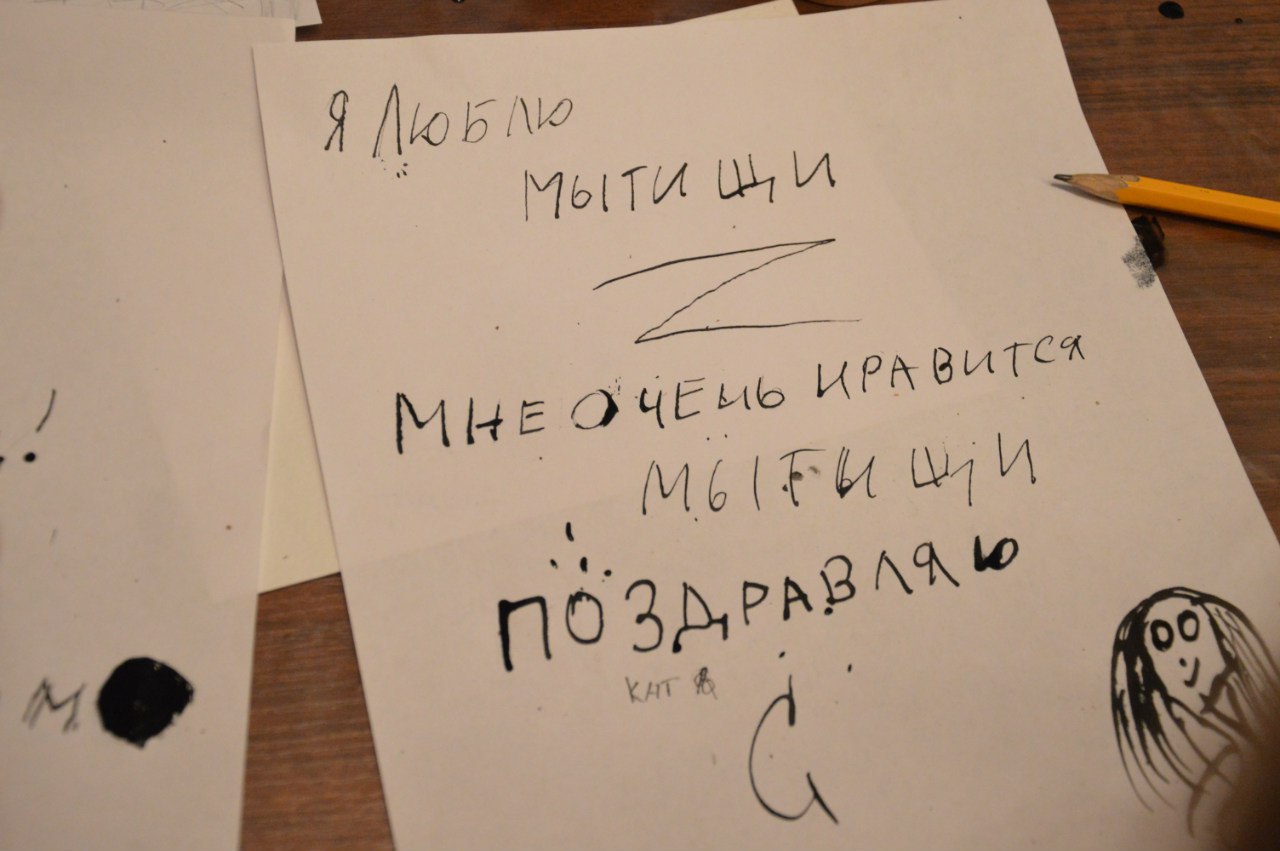 Я ЛЮБЛЮ
МЫТИЩИ
Z
МНЕ ОЧЕНЬ НРАВИТСЯ
МЫТИЩИ
ПОЗДРАВЛЯЮ
С